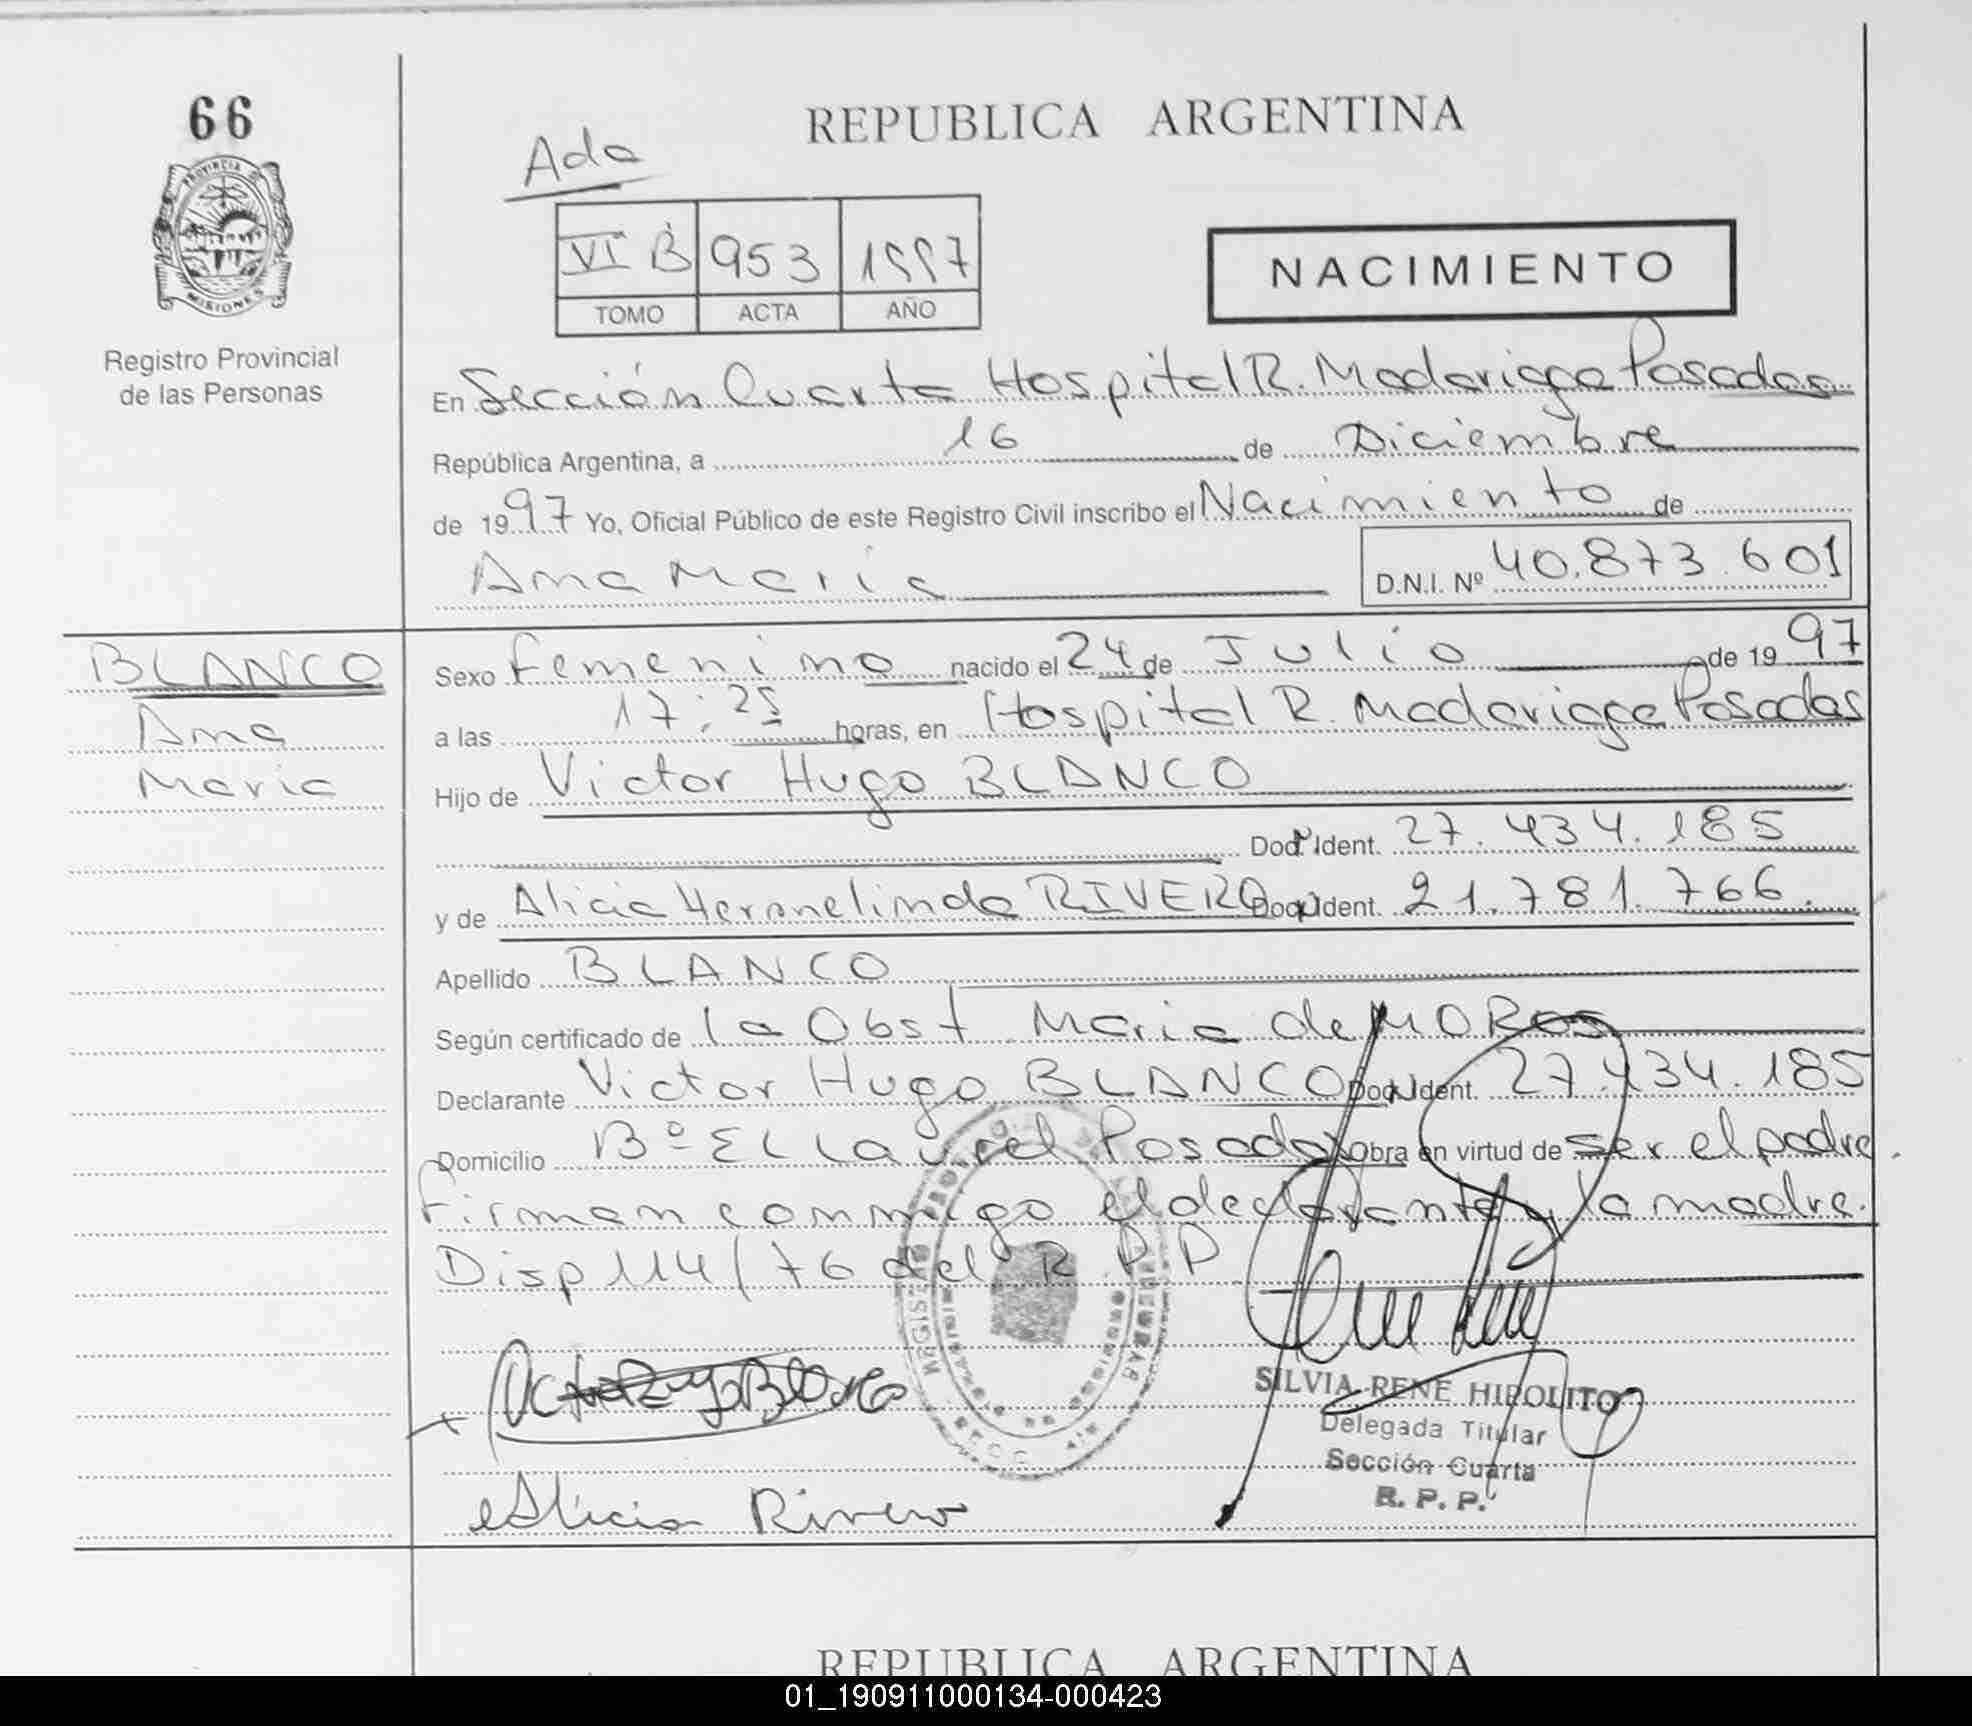 66
PROVINCIA DE
MISIONES
Registro Provincial
de las Personas
REPUBLICA ARGENTINA
Ada
VI B 953 1997
TOMO ACTA AÑO
NACIMIENTO
En Sección Cuarta Hospital R. Madariaga Posadas
República Argentina, a 16 de Diciembre
de 1997 Yo, Oficial Público de este Registro Civil inscribo el Nacimiento de
Ana Maria D.N.I. Nº 40.873.601
BLANCO
Ana
Maria
Sexo femenino nacido el 24 de Julio de 1997
a las 17:25 horas, en Hospital R. Madariaga Posadas
Hijo de Victor Hugo BLANCO
Doc. Ident. 27.434.185
y de Alicia Hermelinda RIVERO Doc. Ident. 21.781.766.
Apellido BLANCO
Según certificado de la Obst Maria de MOROS
Declarante Victor Hugo BLANCO Doc. Ident. 27.434.185
Domicilio Bº EL Laurel Posadas Obra en virtud de ser el padre.
firman conmigo el declarante y la madre.
Disp 114/76 del R.P.P
Victor Hugo Blanco
SILVIA RENE HIPOLITO
Delegada Titular
Sección Cuarta
R. P. P.
Alicia Rivero
REPUBLICA ARGENTINA
01_190911000134-000423